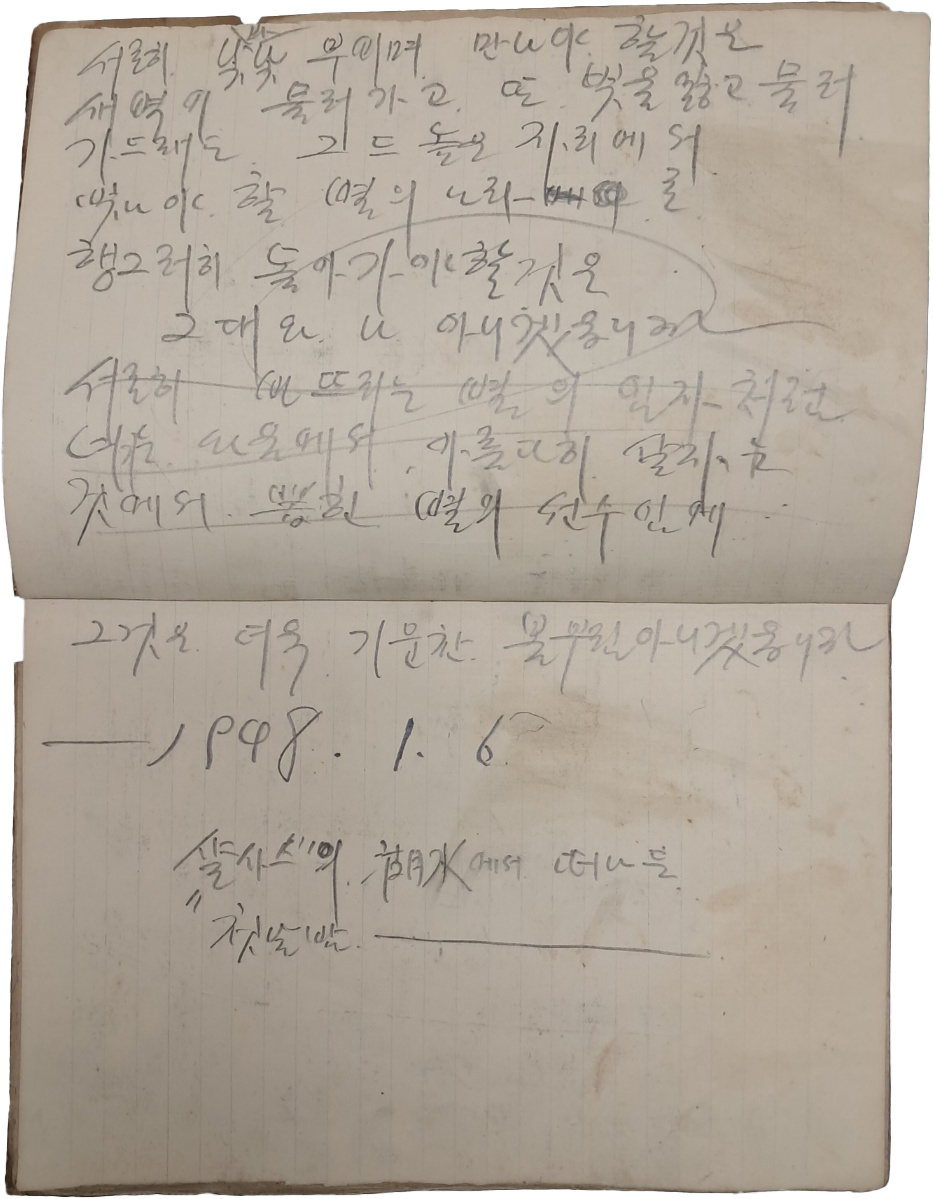 서른히 빛빛 부비며 만나야 할것은
새벽이 물러가고 또 빛을 잃고 물러
가드래도 그 드높은 자리에서
빛나야 할 별의 노래를
행그러히 돌아가야할것은
그대와 나 아니겠읍니까
서른히 뜨라는 별의 입자처럼
마을에서 아름다히 살자는
것에서 뽑힌 별의 선수인제
그것은 더욱 기운찬 몸부림아니겠읍니까
— 1948. 1. 6
"샬사스"의 胡水에서 떠나든
첫날밤 —